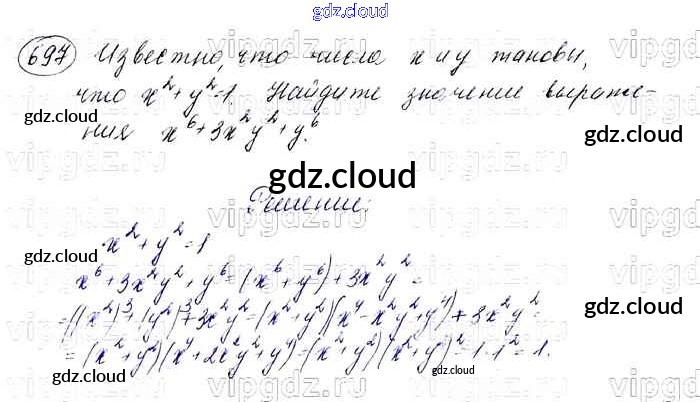 gdz.cloud
697 Известно, что числа x и y таковы,
что x²+y²=1. Найдите значение выраже-
ния x⁶+3x²y²+y⁶.
gdz.cloud
gdz.cloud
gdz.cloud
Решение:
x²+y²=1
gdz.cloud
x⁶+3x²y²+y⁶=(x⁶+y⁶)+3x²y²=
=((x²)³+(y²)³)+3x²y²=(x²+y²)(x⁴-x²y²+y⁴)+3x²y²=
gdz.cloud
=(x²+y²)(x⁴+2x²y²+y⁴)=(x²+y²)(x²+y²)²=1·1²=1.
gdz.cloud
gdz.cloud